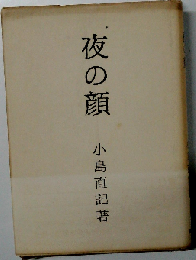 夜の顔
小島直記著